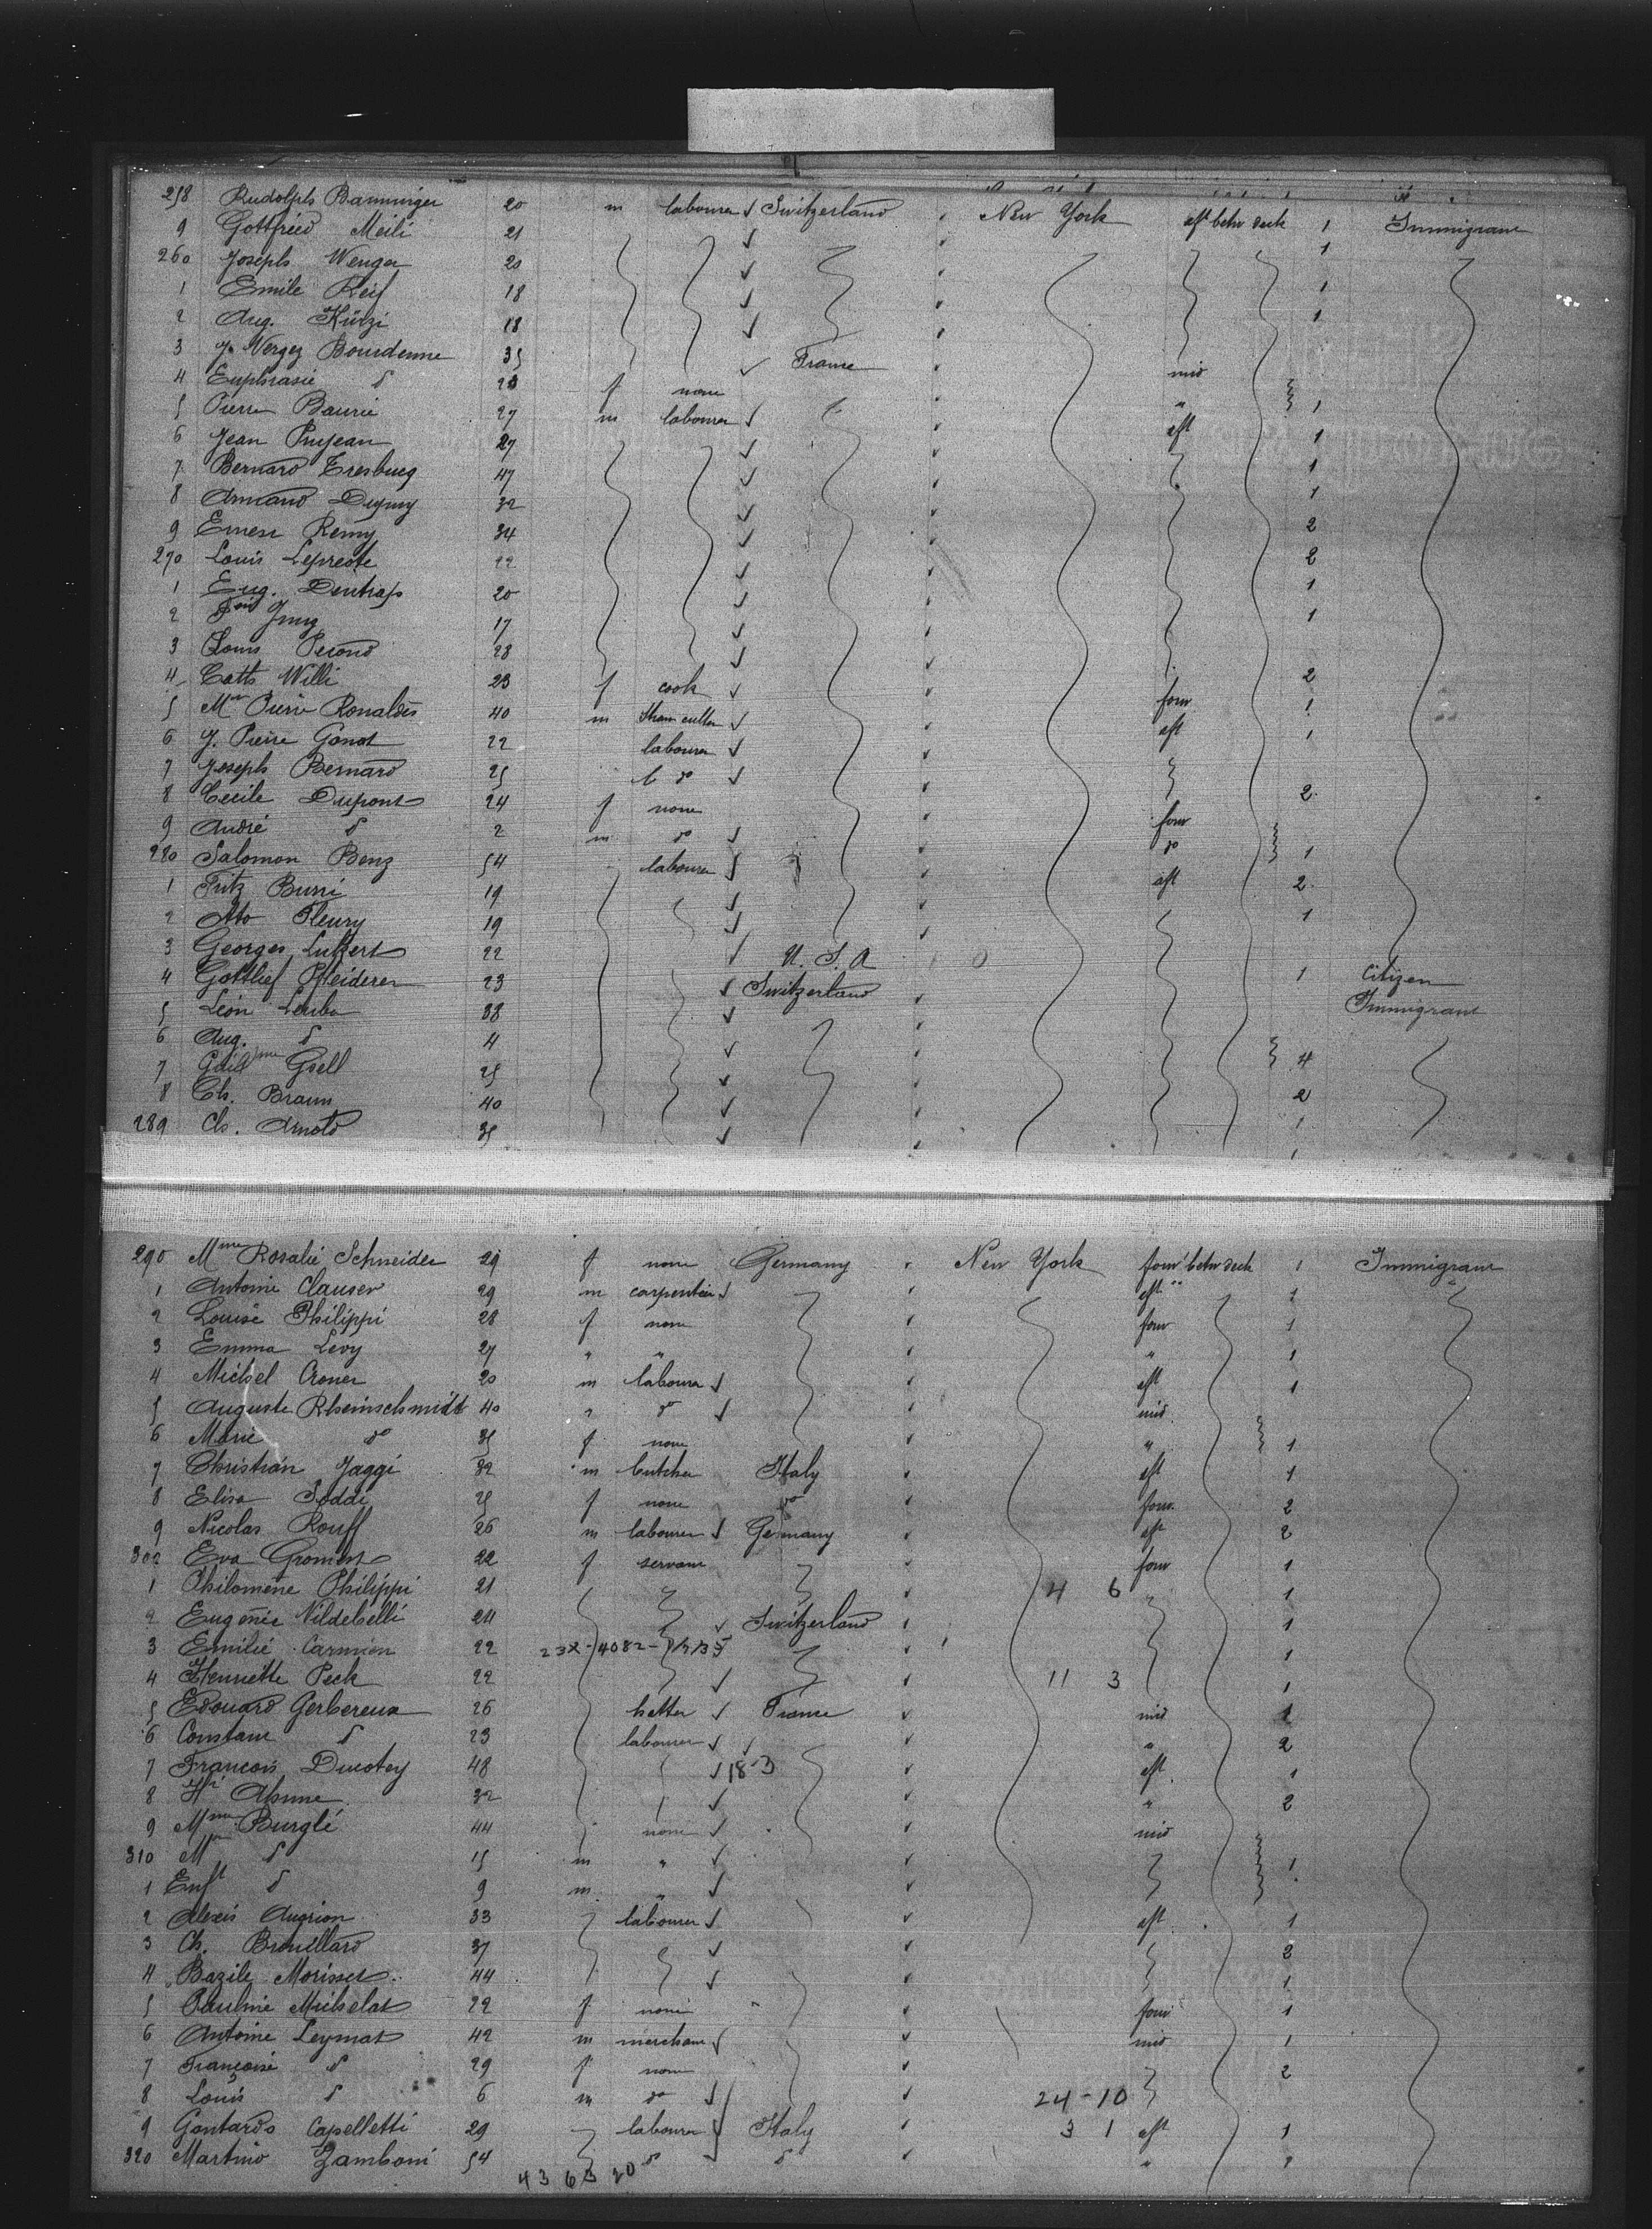 258 Rudolph Banninger 20 m labourer Switzerland New York aft betw deck 1 Immigrant
9 Gottfried Meili 21 1
260 Joseph Wenger 20
1 Emile Reif 18 1
2 Aug. Kürzi 18 1
3 J. Vergez Bourdenne 35 France mid
4 Euphrasie d 23 f none "
5 Pierre Baurie 27 m labourer aft 1
6 Jean Puyjean 27 1
7 Bernard Tresbucq 47 1
8 Armand Dupuy 32 1
9 Ernest Remy 34 2
270 Louis Lepreste 22 2
1 Eug. Dentrap 20 1
2 Fois Jung 17 1
3 Louis Perono 28
4 Cath Willi 23 f cook four 2
5 Mr Pierre Ronaldès 40 m aft 1
6 J. Pierre Gonat 22 labourer 1
7 Joseph Bernard 25 do
8 Cecile Dupont 24 f none four 2
9 André d 2 m do do
280 Salomon Benz 54 labourer aft 1
1 Fritz Burri 19 2
2 Fleury 19 1
3 Georges Lutkert 22 U. S. A
4 Gottlief Pfeiderer 23 Switzerland 1 Citizen
5 Léon Leuba 38 Immigrant
6 Aug. d 4
7 Gsell 25 4
8 Ch. Braun 40 2
289 Ch. Arnold 35 1
290 Mme Rosalie Schneider 29 f none Germany New York four betw deck 1 Immigrant
1 Antoine Clauser 29 m carpentier aft " 1
2 Louise Philippi 28 f none four 1
3 Emma Levy 27 " " " 1
4 Michel Croner 20 m labourer aft 1
5 Auguste Rheinschmidt 40 " do mid
6 Marie do 35 f none " 1
7 Christian Jaggi 32 m butcher Italy aft 1
8 Elisa Soddi 25 f none do four 2
9 Nicolas Rouff 26 m labourer Germany aft 2
300 Eva Groment 22 f servant four 1
1 Philomène Philippi 21 4 6 " 1
2 Eugenie Nildebelli 24 Switzerland 1
3 Emilie Carmien 22 1
4 Henriette Peck 22 11 3 1
5 Edouard Gerbereux 26 hatter France mid 1
6 Constant d 23 labourer " 2
7 Francois Ducotey 48 18-3 aft 1
8 Hri Ahnne 32 " 2
9 Mme Burglé 44 none mid
310 Mr d 15 m " 1
1 Enft d 9 m "
2 Alexis Augrion 33 labourer aft 1
3 Ch. Brouillard 37 2
4 Bazile Morisset 44 1
5 Pauline Michelat 22 f none four 1
6 Antoine Leymat 42 m merchant mid 1
7 Françoise d 29 f none 2
8 Louis d 6 m do 24-10
9 Gontardo Capelletti 29 labourer Italy 3 1 aft 1
320 Martino Zamboni 54 do d " 1
43 63 20